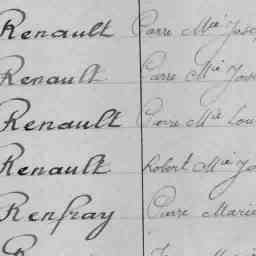 Renault Pierre Mie Jose
Renault Pierre Mie Jose
Renault Pierre Mie Lou
Renault Robert Mie Jo
Renfray Pierre Marie